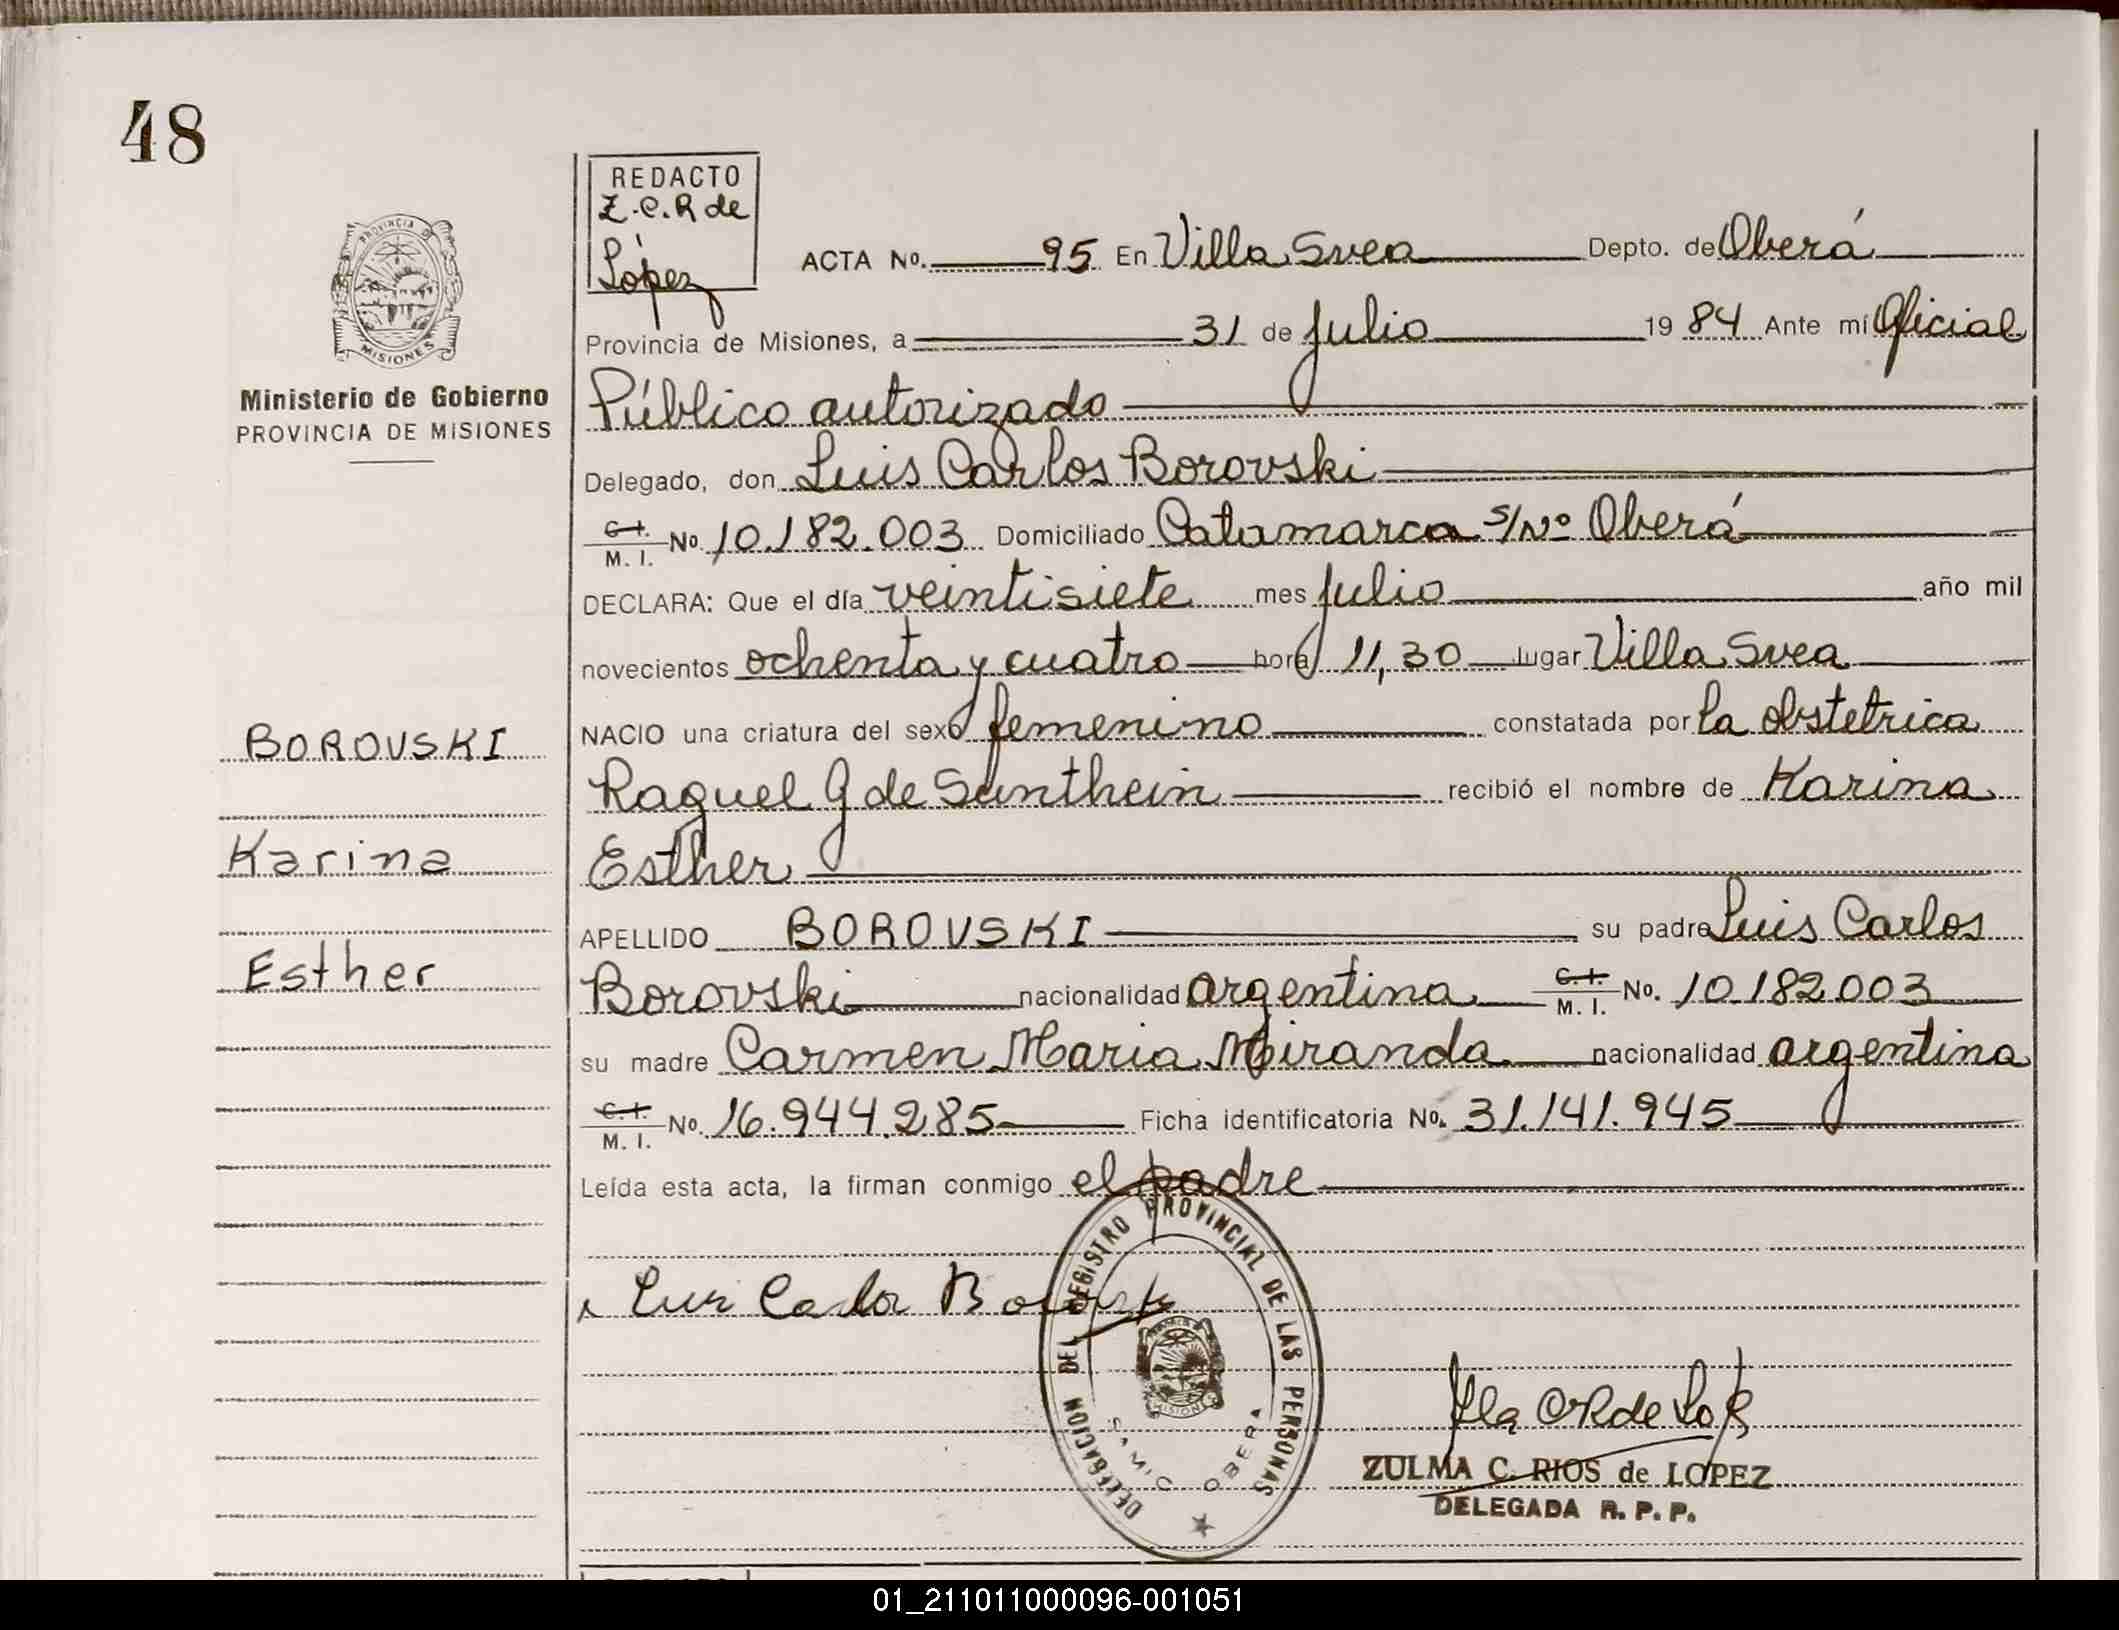 48
REDACTO
Z.C.R de
López
PROVINCIA DE
MISIONES
Ministerio de Gobierno
PROVINCIA DE MISIONES
ACTA No. 95 En Villa Svea Depto. de Oberá
Provincia de Misiones, a 31 de julio 19 84 Ante mí Oficial
Público autorizado
Delegado, don Luis Carlos Borovski
C. I.
M. I. No. 10.182.003 Domiciliado Catamarca s/Nº Oberá
DECLARA: Que el día veintisiete mes julio año mil
novecientos ochenta y cuatro hora 11,30 lugar Villa Svea
NACIO una criatura del sexo femenino constatada por la obstetrica
Raquel G de Santhein recibió el nombre de Karina
Esther
APELLIDO BOROVSKI su padre Luis Carlos
Borovski nacionalidad argentina C. I.
M. I. No. 10.182.003
su madre Carmen Maria Miranda nacionalidad argentina
C. I.
M. I. No. 16.944.285 Ficha identificatoria No. 31.141.945
Leída esta acta, la firman conmigo el padre
BOROVSKI
Karina
Esther
Luis Carlos Borovski
DELEGACION DEL REGISTRO PROVINCIAL DE LAS PERSONAS
MISIONES
SAMIC OBERA
ZULMA C. RIOS de LOPEZ
DELEGADA R. P. P.
01_211011000096-001051